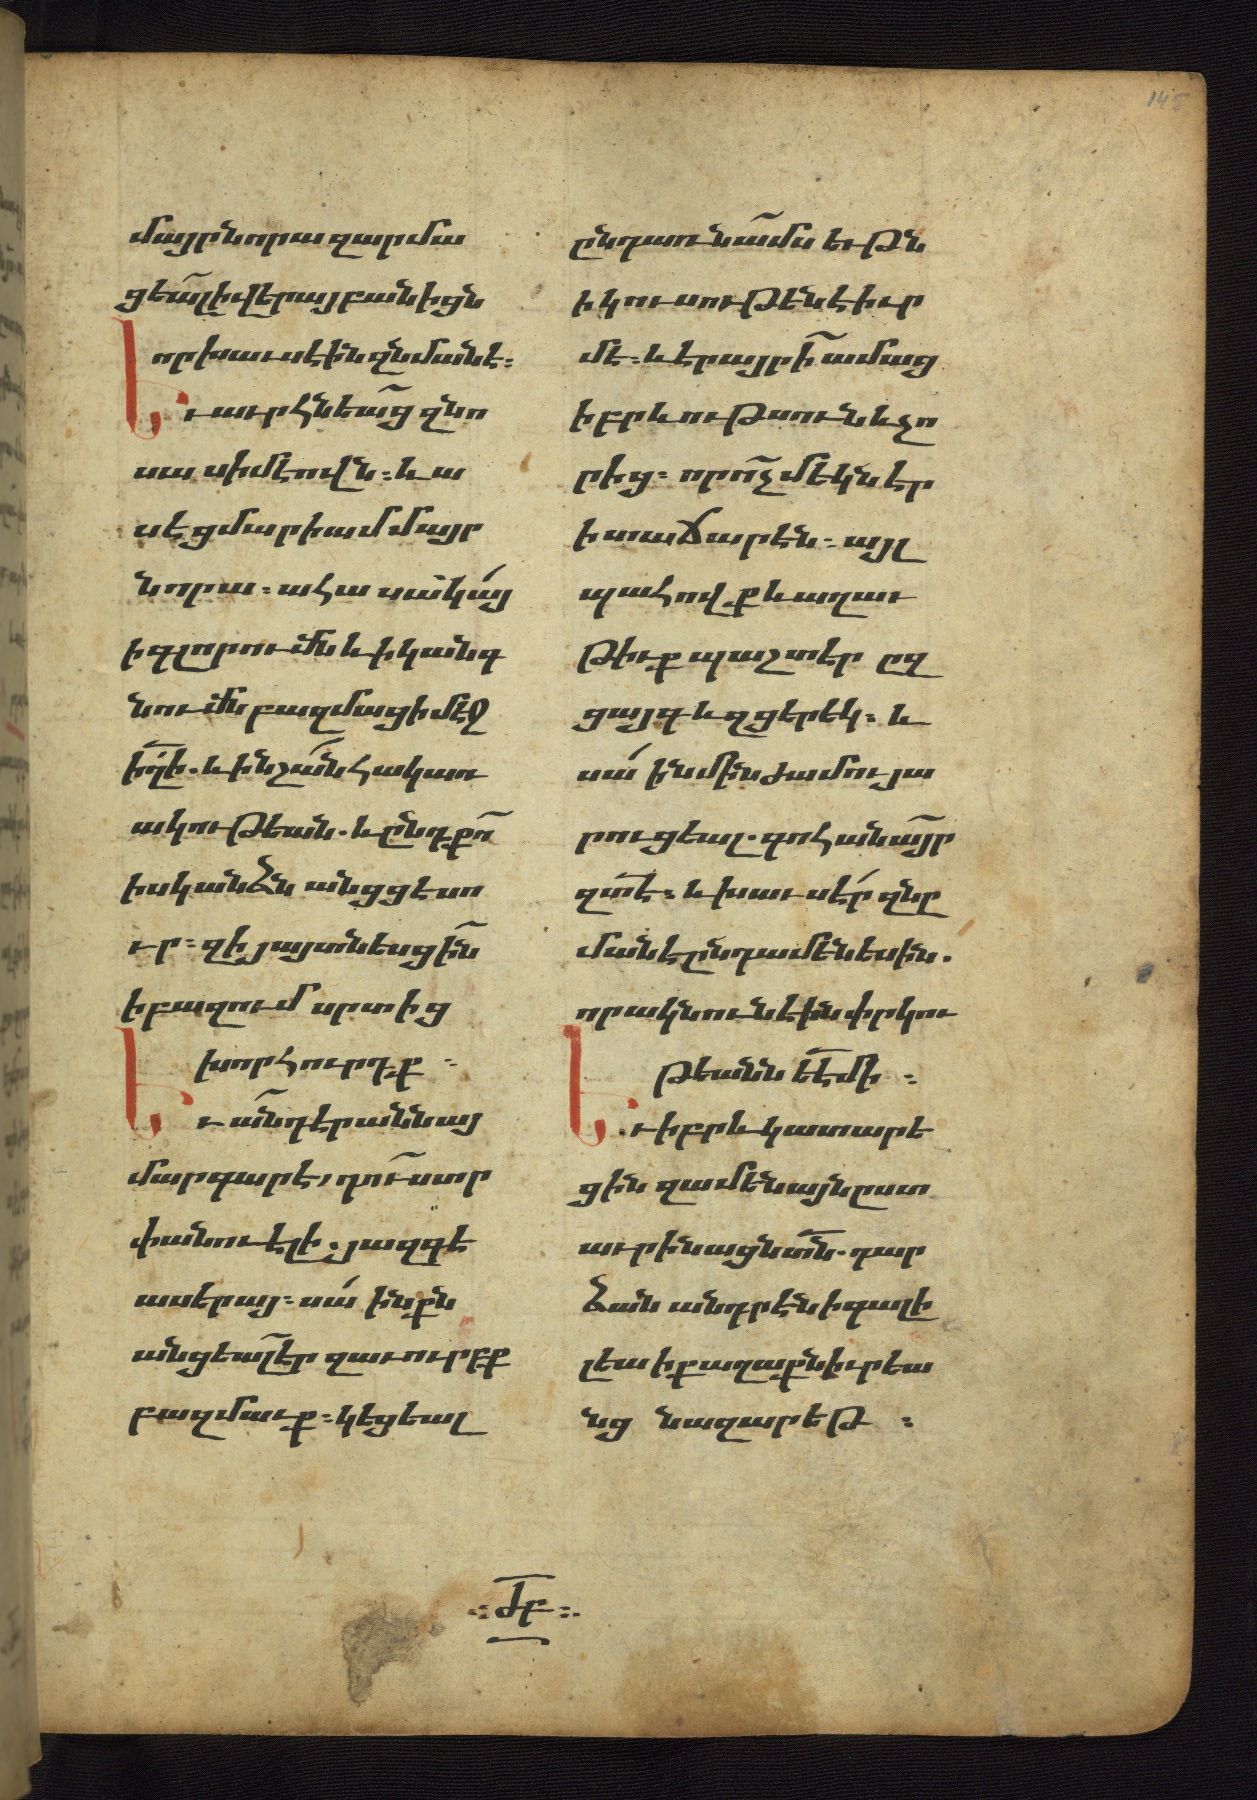 145
մայր նորա զարմա
ցեալ ի վերայ բանիցն
որ խաւսէին զնմանէ։
Եւ աւրհնեաց զնո
սա սիմէովն։ և ա
սէ ցմարիամ մայր
նորա։ ահա սա կայ
ի գլորումն և ի կանգ
նումն բազմաց ի մէջ
իղի. և ի նշան հակառ
ակութեան. և ընդ քո
իսկ անձն անցցէ սո
ւր։ զի յայտնեսցին
ի բազում սրտից
խորհուրդք։
Եւ անդ էր աննայ
մարգարէ, դուստր
փանուելի. յազգէ
ասերայ։ սա ինքն
անցեալ էր զաւուրբք
բազմաւք։ կեցեալ
ընդ առն ամս եւթն
ի կուսութենէ իւր
մէ։ և էր այրի ամաց
իբրև ութսուն և չո
րից։ որ ոչ մեկնէր
ի տաճարէն։ այլ
պահովք և աղաւ
թիւք պաշտէր ըզ
ցայգ և զցերեկ։ և
սա ի նմին ժամու յա
րուցեալ. գոհանայր
զտէ։ և խաւսէր զնը
մանէ ընդ ամենեսին.
որ ակնունէին փրկու
թեանն եէմի։
Եւ իբրև կատարե
ցին զամենայն ըստ
աւրինացն տն. դար
ձան անդրէն ի գալի
լեա ի քաղաքն իւրեա
նց նազարեթ։
ԺԲ